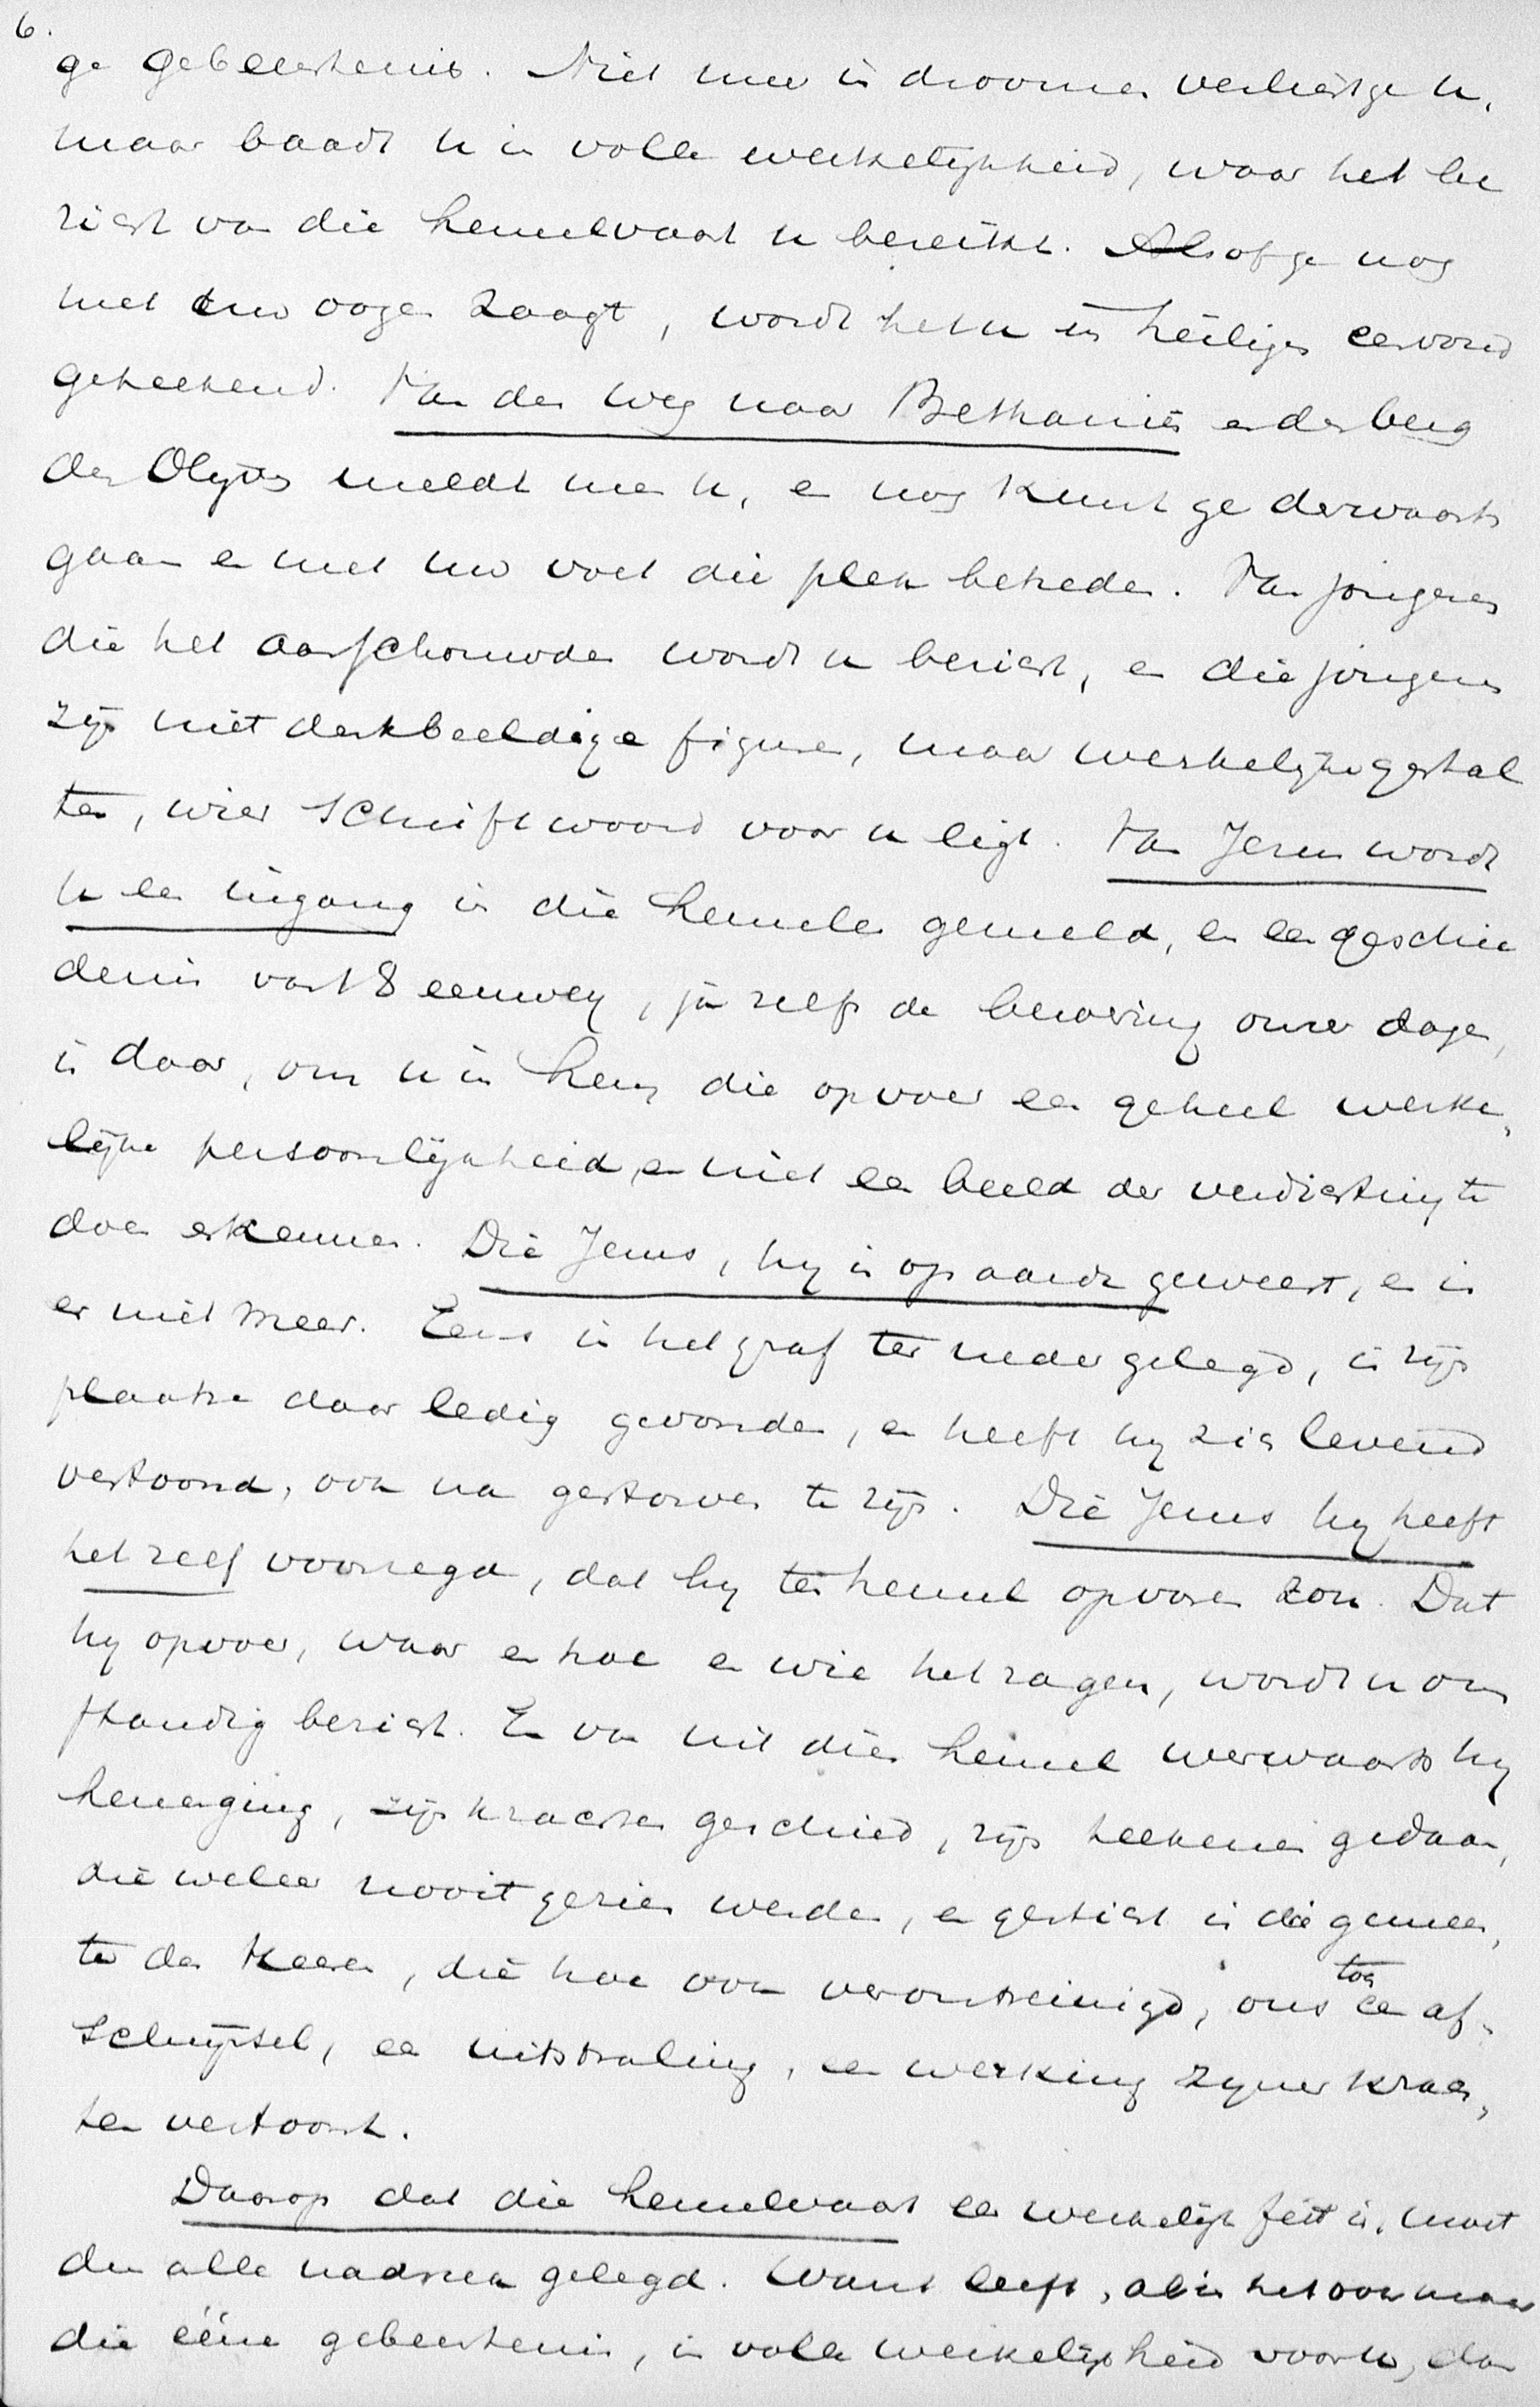 6.
ge gebeurtenis. Niet meer in droomen verliest ge u,
maar baadt u in volle werkelijkheid, waar het be
richt van die hemelvaart u bereikt. Alsof ge nog
met uw oogen zaagt, wordt het u in heiligen eenvoud
geteekend. Van den weg naar Bethanië en den berg
der Olijven meldt men u, en nog kunt ge derwaarts
gaan en met uw voet die plek betreden. Van jongeren
die het aanschouwden wordt u bericht, en die jongeren
zijn niet denkbeeldige figuren, maar werkelijke gestal
ten, wier Schriftwoord voor u ligt. Van Jezus wordt
u een ingang in die hemelen gemeld, en een geschie
denis van 18 eeuwen, ja zelfs de beroering onzer dagen,
is daar, om u in hem die opvoer een geheel werke„
lijke persoonlijkheid, en niet een beeld der verdichting te
doen erkennen. Die Jezus, hij is op aarde geweest, en is
er niet meer. Eens in het graf ter neder gelegd, is zijn
plaatse daar ledig gevonden, en heeft hij zich levend
vertoond, ook na gestorven te zijn. Die Jezus hij heeft
het zelf voorzegd, dat hij ten hemel opvaren zou. Dat
hij opvoer, waar en hoe en wie het zagen, wordt u om
standig bericht. En van uit dien hemel werwaarts hij
henenging, zijn krachten geschied, zijn teekenen gedaan,
die weleer nooit gezien werden, en gesticht is die gemeen„
te des Heeren, die hoe ook verontreinigd, ons toch een af„
schijnsel, een uitstraling, een werking zijner krach„
ten vertoont.
Daarop dat die hemelvaart een werkelijk feit is, moet
dus alle nadruk gelegd. Want leeft, al is het ook maar
die ééne gebeurtenis, in volle werkelijkheid voor u, dan